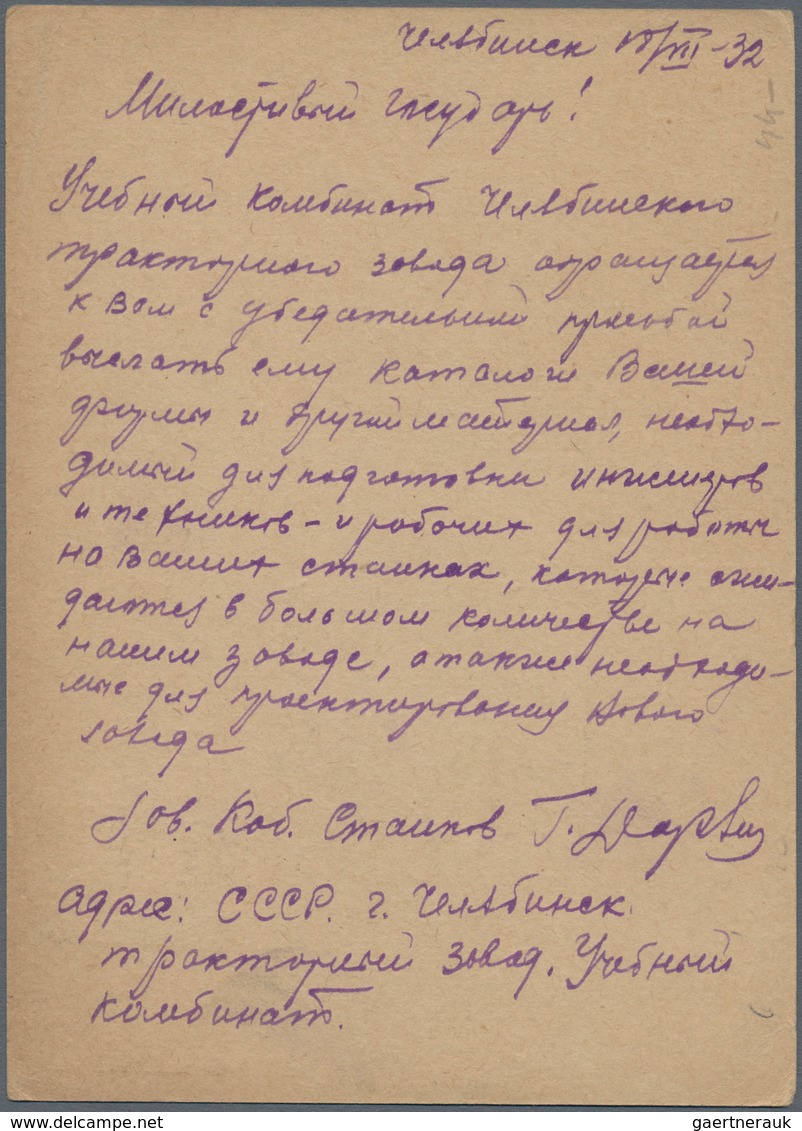 Челябинск -32
Милостивый государь!
44-
Учебный комбинат Челябинского
тракторного завода обращается
к Вам с убедительной просьбой
выслать ему каталоги Вашей
фирмы и другой материал, необхо-
димый для подготовки инженеров
и техников - и рабочих для работы
на Ваших станках, которые ожи-
даются в большом количестве на
нашем заводе, а также необходи-
мые для проектирования нового
завода
Зав. Каб. Станков Г.
адрес: СССР. г. Челябинск.
тракторный завод. Учебный
комбинат.
www.delcampe.net
gaertnerauk